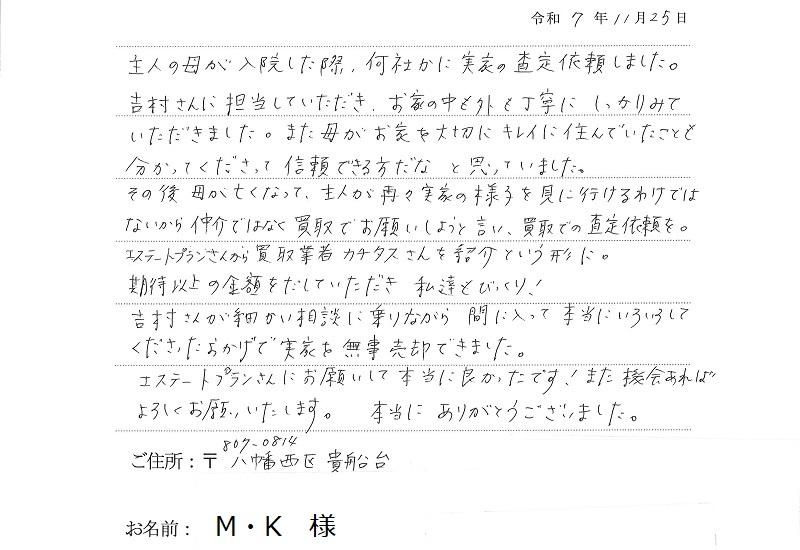 令和 7 年 11 月 25 日
主人の母が入院した際、何社かに実家の査定依頼しました。
吉村さんに担当していただき、お家の中も外も丁寧にしっかりみて
いただきました。また母がお家を大切にキレイに住んでいたことも
分かってくださって信頼できる方だなと思っていました。
その後母が亡くなって、主人が再々実家の様子を見に行けるわけでは
ないから仲介ではなく買取でお願いしようと言い、買取での査定依頼を。
エステートプランさんから買取業者カチタスさんを紹介という形に。
期待以上の金額をだしていただき 私達もびっくり!
吉村さんが細かい相談に乗りながら 間に入って本当にいろいろして
くださったおかげで実家を無事売却できました。
エステートプランさんにお願いして本当に良かったです!また機会あれば
よろしくお願いいたします。 本当にありがとうございました。
807-0814
ご住所:〒 八幡西区貴船台
お名前: M・K 様